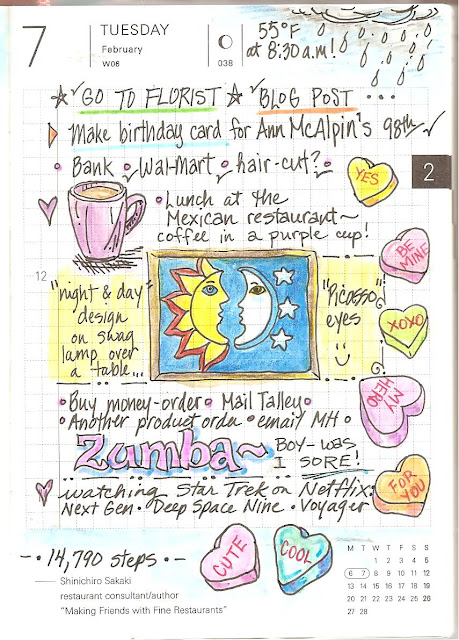 7
TUESDAY
February
W06
038
55°F
at 8:30 a.m!
GO TO FLORIST
BLOG POST
Make birthday card for Ann McAlpin's 98th
Bank • Wal-Mart • hair-cut?
YES
2
Lunch at the
Mexican restaurant~
coffee in a purple cup!
BE MINE
12
"night & day
design
on swag
lamp over
a table...
"Picasso"
eyes
XOXO
MY HERO
• Buy money-order • Mail Talley •
• Another product order • email MH •
Zumba~
BOY-was
I SORE!
FOR YOU
watching Star Trek on Netflix:
Next Gen • Deep Space Nine • Voyager
-•14,790 steps -•-
CUTE
COOL
Shinichiro Sakaki
restaurant consultant/author
"Making Friends with Fine Restaurants"
M T W T F S S
1 2 3 4 5
6 7 8 9 10 11 12
13 14 15 16 17 18 19
20 21 22 23 24 25 26
27 28